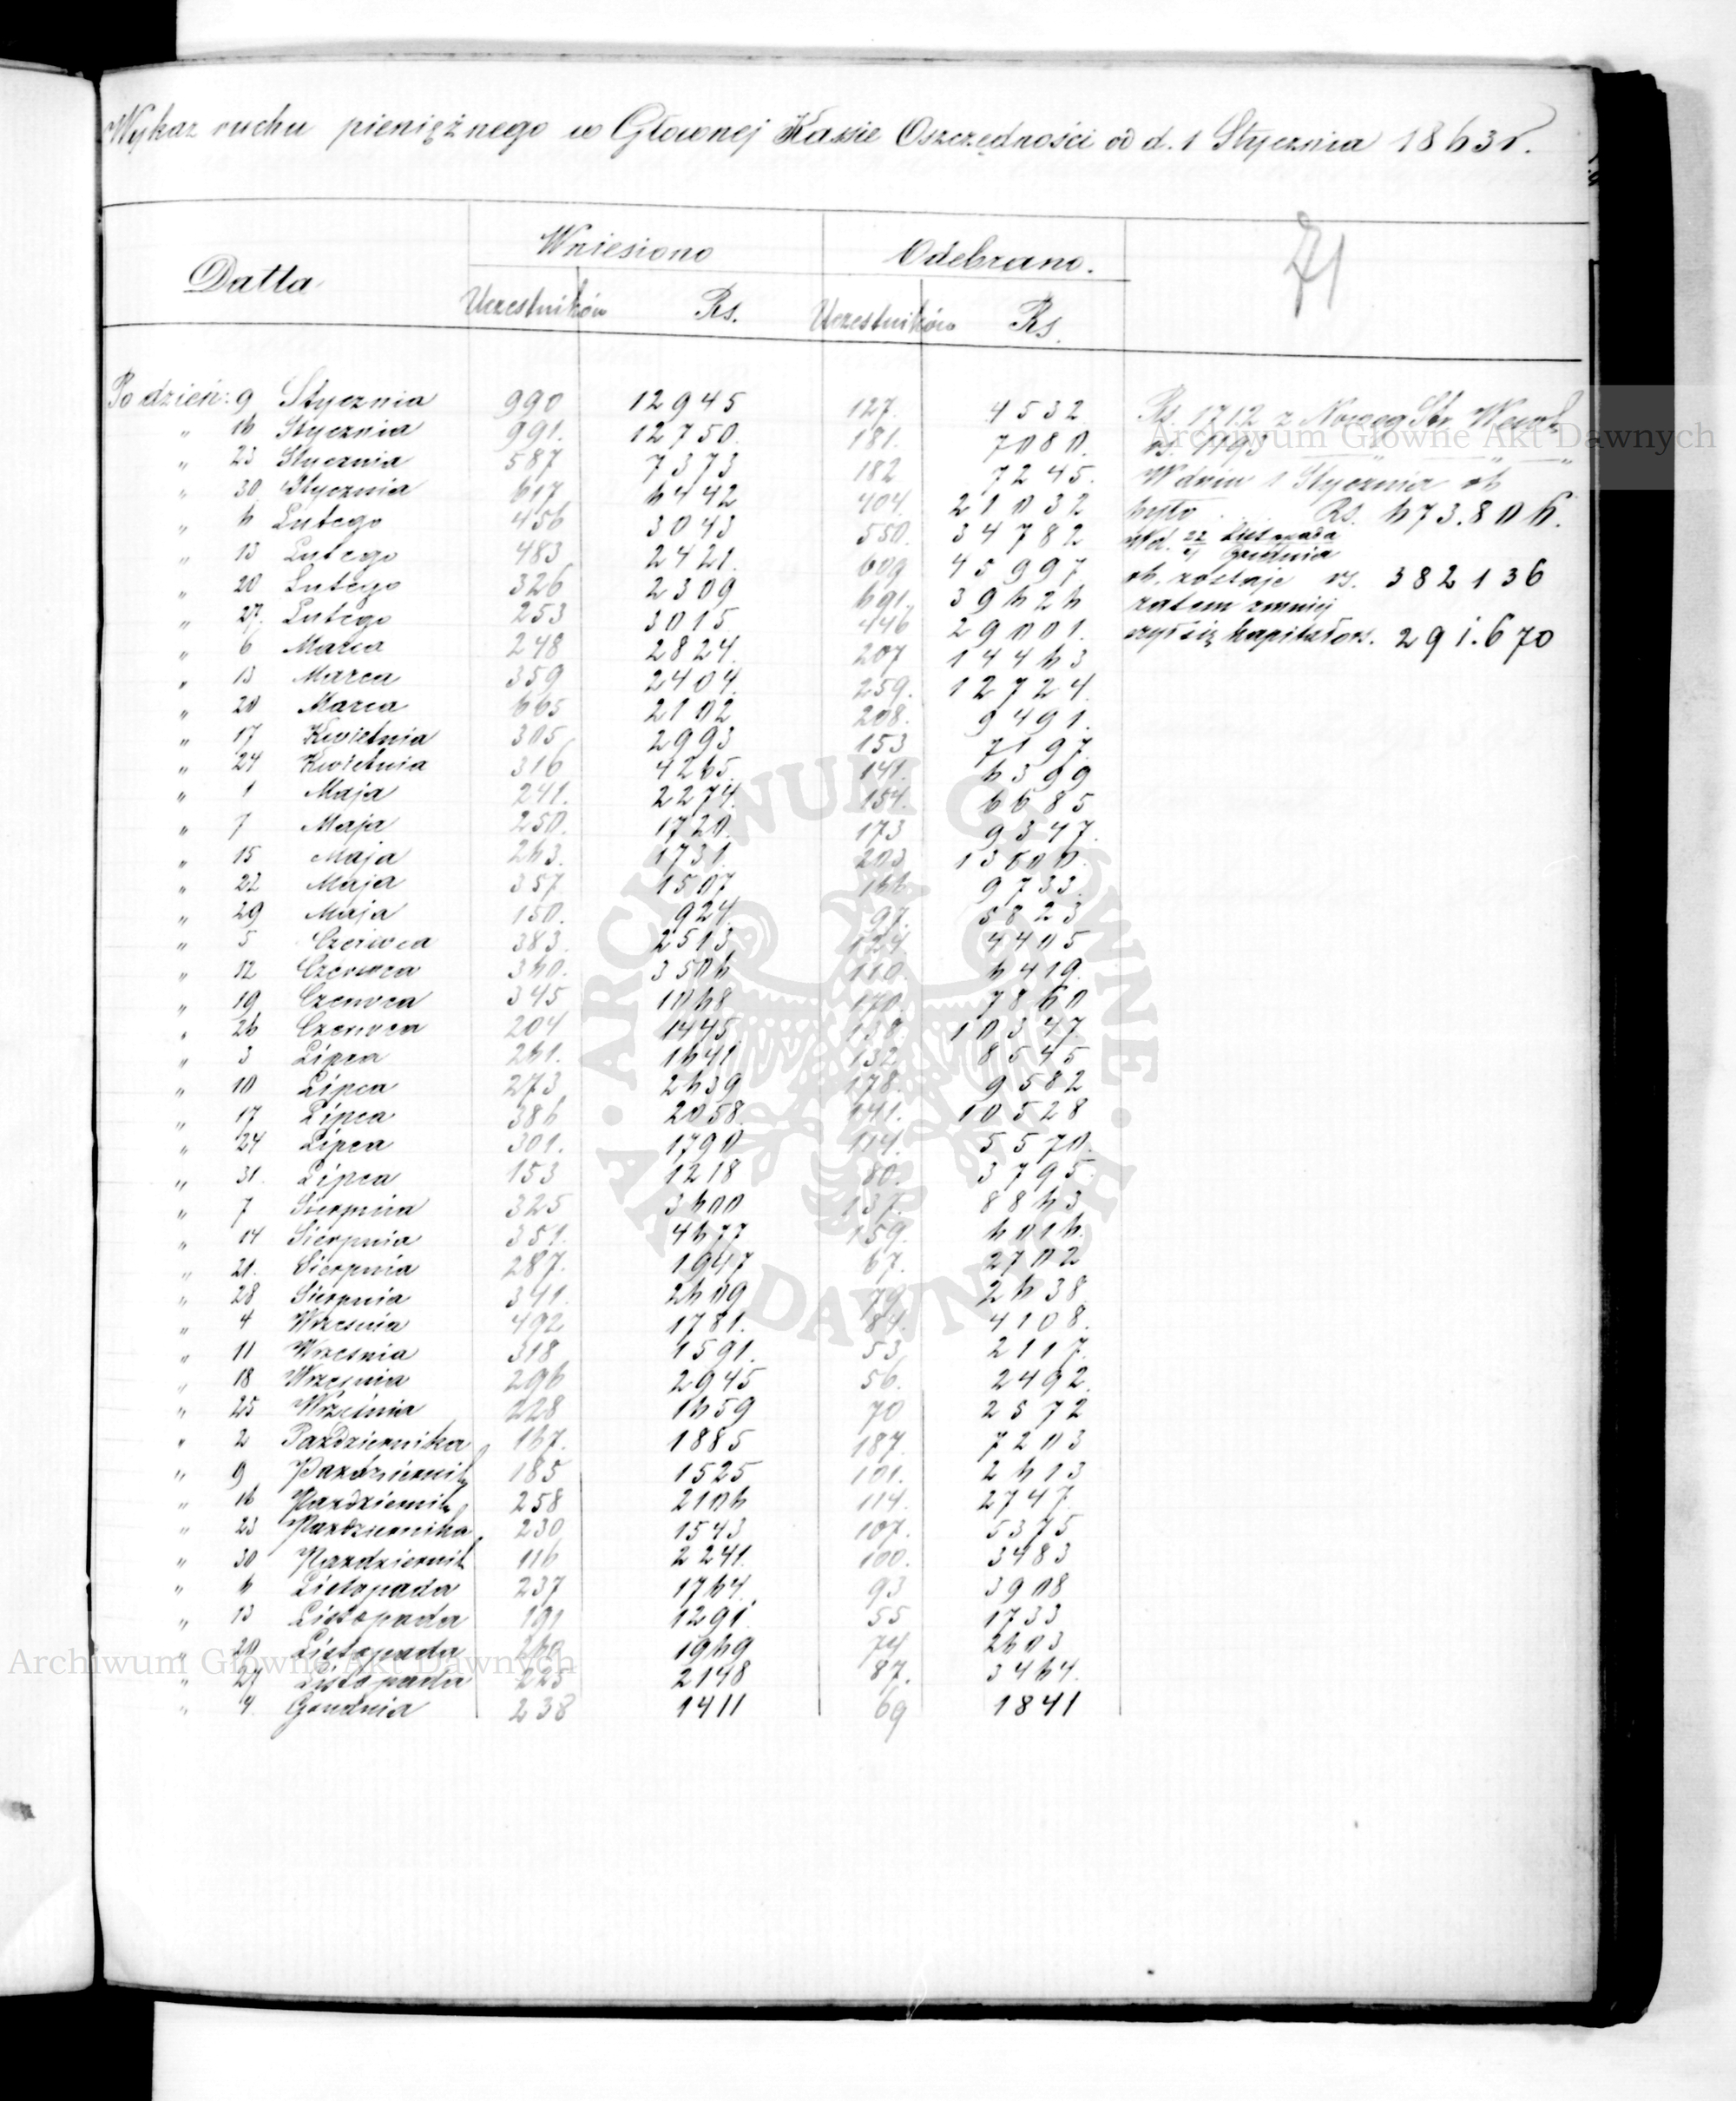 Wykaz ruchu pieniężnego w Głównej Kassie Oszczędności od d. 1 Stycznia 1863 r.
71
Datta Wniesiono Odebrano.
Uczestników Rs. Uczestników Rs.
Po dzień: 9 Stycznia 990 12945 127. 4532
" 16 Stycznia 991. 12750. 181. 7080.
" 23 Stycznia 587 7373 182 7245.
" 30 Stycznia 617 6442 404. 21032
" 6 Lutego 456 3043 550. 34782
" 13 Lutego 483 2421. 609 45997
" 20 Lutego 326 2309 691. 39626
" 27. Lutego 253 3015. 446 29001.
" 6 Marca 248 2824. 207 14463
" 13 Marca 359 2404. 259. 12724.
" 20 Marca 665 2102 208. 9491.
" 17 Kwietnia 305 2993 153 7197.
" 24 Kwietnia 316 4265. 141. 6399
" 1 Maja 241. 2274. 154. 6685
" 7 Maja 250. 1720. 173 9347.
" 15 Maja 263. 1731. 203
" 22 Maja 357 1507 166 9733.
" 29 Maja 150. 924. 97. 5823
" 5 Czerwca 383. 2513 124 4405
" 12 Czerwca 360. 3506 110. 6419.
" 19 Czerwca 345 1068 170. 7860
" 26 Czerwca 204 1445 138. 10347.
" 3 Lipca 261. 1641 132 8545
" 10 Lipca 273 2639 178. 9582
" 17 Lipca 386 2058. 141. 10528
" 24 Lipca 301. 1790 114. 5570.
" 31. Lipca 153 1218 80. 3795.
" 7 Sierpnia 325 3600 137. 8863
" 14 Sierpnia 351. 4677 159. 6016.
" 21. Sierpnia 287. 1947 67. 2702
" 28 Sierpnia 341. 2609 79. 2638.
" 4 Września 492 1781. 84. 4108.
" 11 Września 318 1591. 53 2117.
" 18 Września 296 2945 56. 2492.
" 25 Września 228 1659 70 2572
" 2 Października 167. 1885 187. 7203
" 9 Październik 185 1525 101. 2613
" 16 Październik 258 2106 114. 2747
" 23 Października 230 1543 107. 5375
" 30 Październik 116 2241. 100. 3483
" 6 Listopada 237 1764. 93 3908
" 13 Listopada 191 1291. 55 1733
" 20 Listopada 260 1969 74 2603
" 27 Listopada 225 2148 87. 3464.
" 4 Grudnia 238 1411 69 1841
Rs. 1712 z
W dniu 1 Stycznia rb
było . . Rs. 673.806.
W d. 22 Listopada
4 Grudnia
rb. zostaje rs. 382136
zatem zmniej
szył się kapitał rs. 291.670
Archiwum Główne Akt Dawnych
Archiwum Główne Akt Dawnych
· ARCHIWUM GŁÓWNE · AKT DAWNYCH